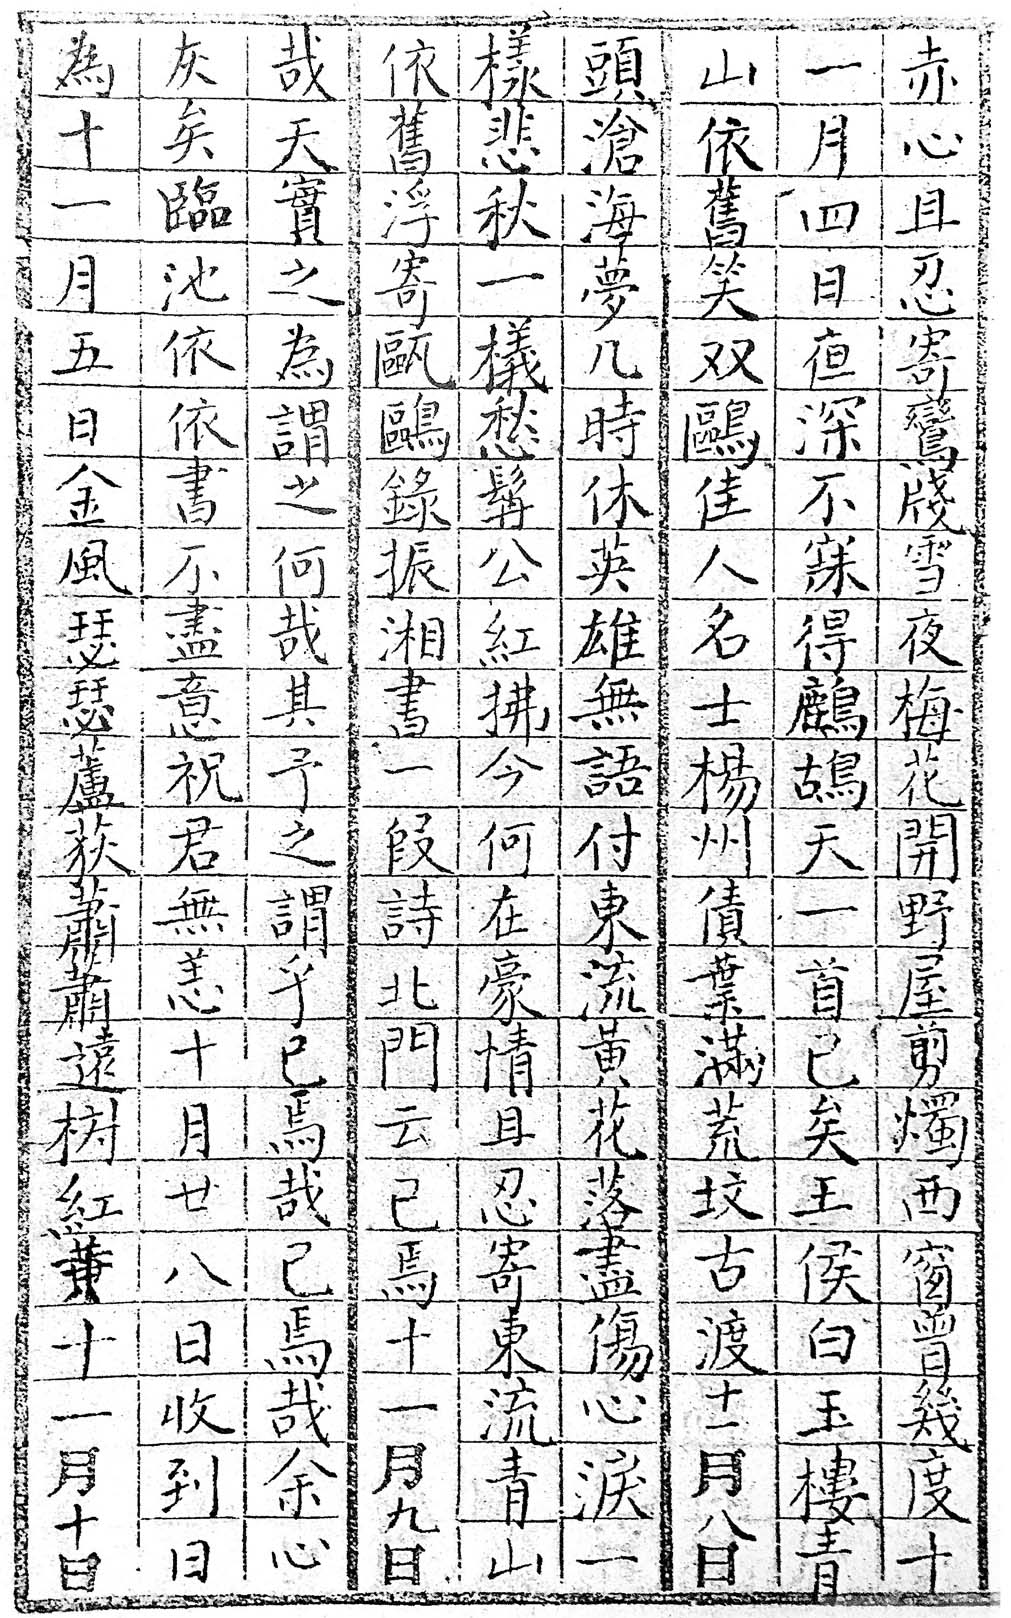 赤心且忍寄鸞牋雪夜梅花開野屋剪燭西窗曾幾度十
一月四日夜深不寐得鷓鴣天一首已矣王侯白玉樓青
山依舊笑双鷗佳人名士楊州債葉滿荒坟古渡十一月八日
頭滄海夢几時休英雄無語付東流黃花落盡傷心淚一
樣悲秋一樣愁髯公紅拂今何在豪情且忍寄東流青山
依舊浮寄甌鷗錄振湘書一段詩北門云已焉十一月九日
哉天實之為謂之何哉其予之謂乎已焉哉已焉哉余心
灰矣臨池依依書不盡意祝君無恙十月廿八日收到日
為十一月五日金風瑟瑟蘆荻蕭蕭遠树紅黄十一月十日